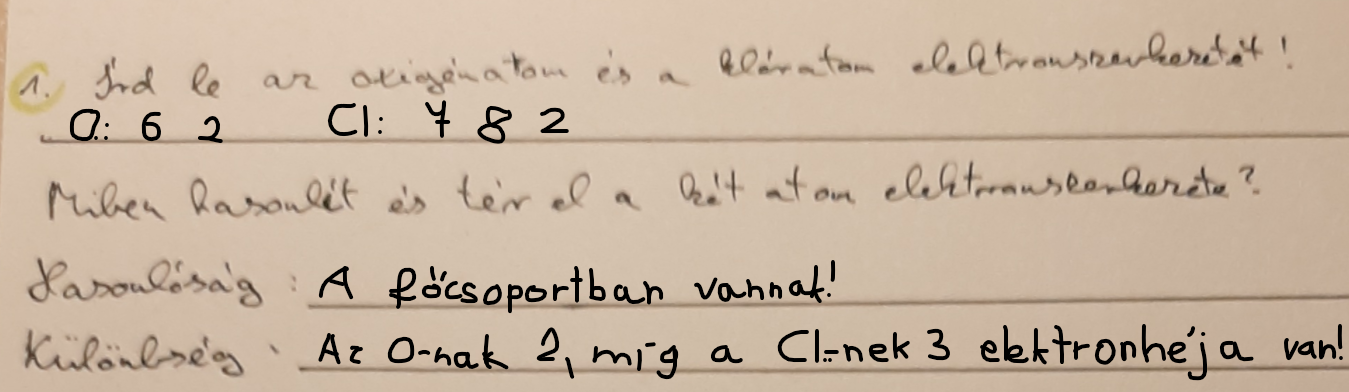 1. Írd le az oxigénatom és a klóratom elektronszerkezetét!
O.: 6 2 Cl: 7 8 2
Miben hasonlít és tér el a két atom elektronszerkezete?
Hasonlóság: A főcsoportban vannak!
Különbség: Az O-nak 2, míg a Cl.-nek 3 elektronhéja van!